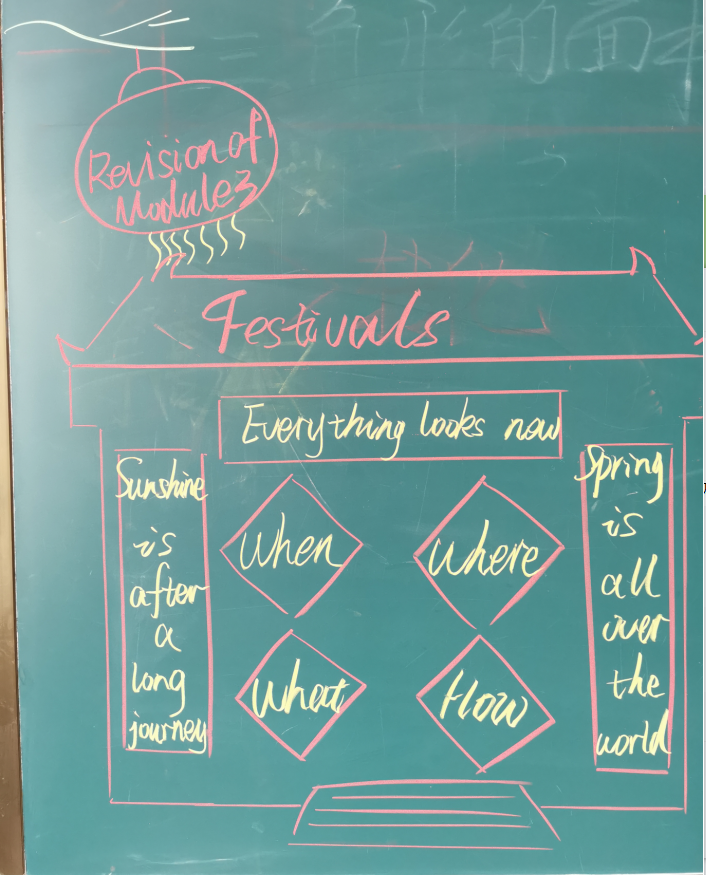 Revision of
Module 3
Festivals
Everything looks now
Sunshine
is
after
a
long
journey
When
Where
What
How
Spring
is
all
over
the
world